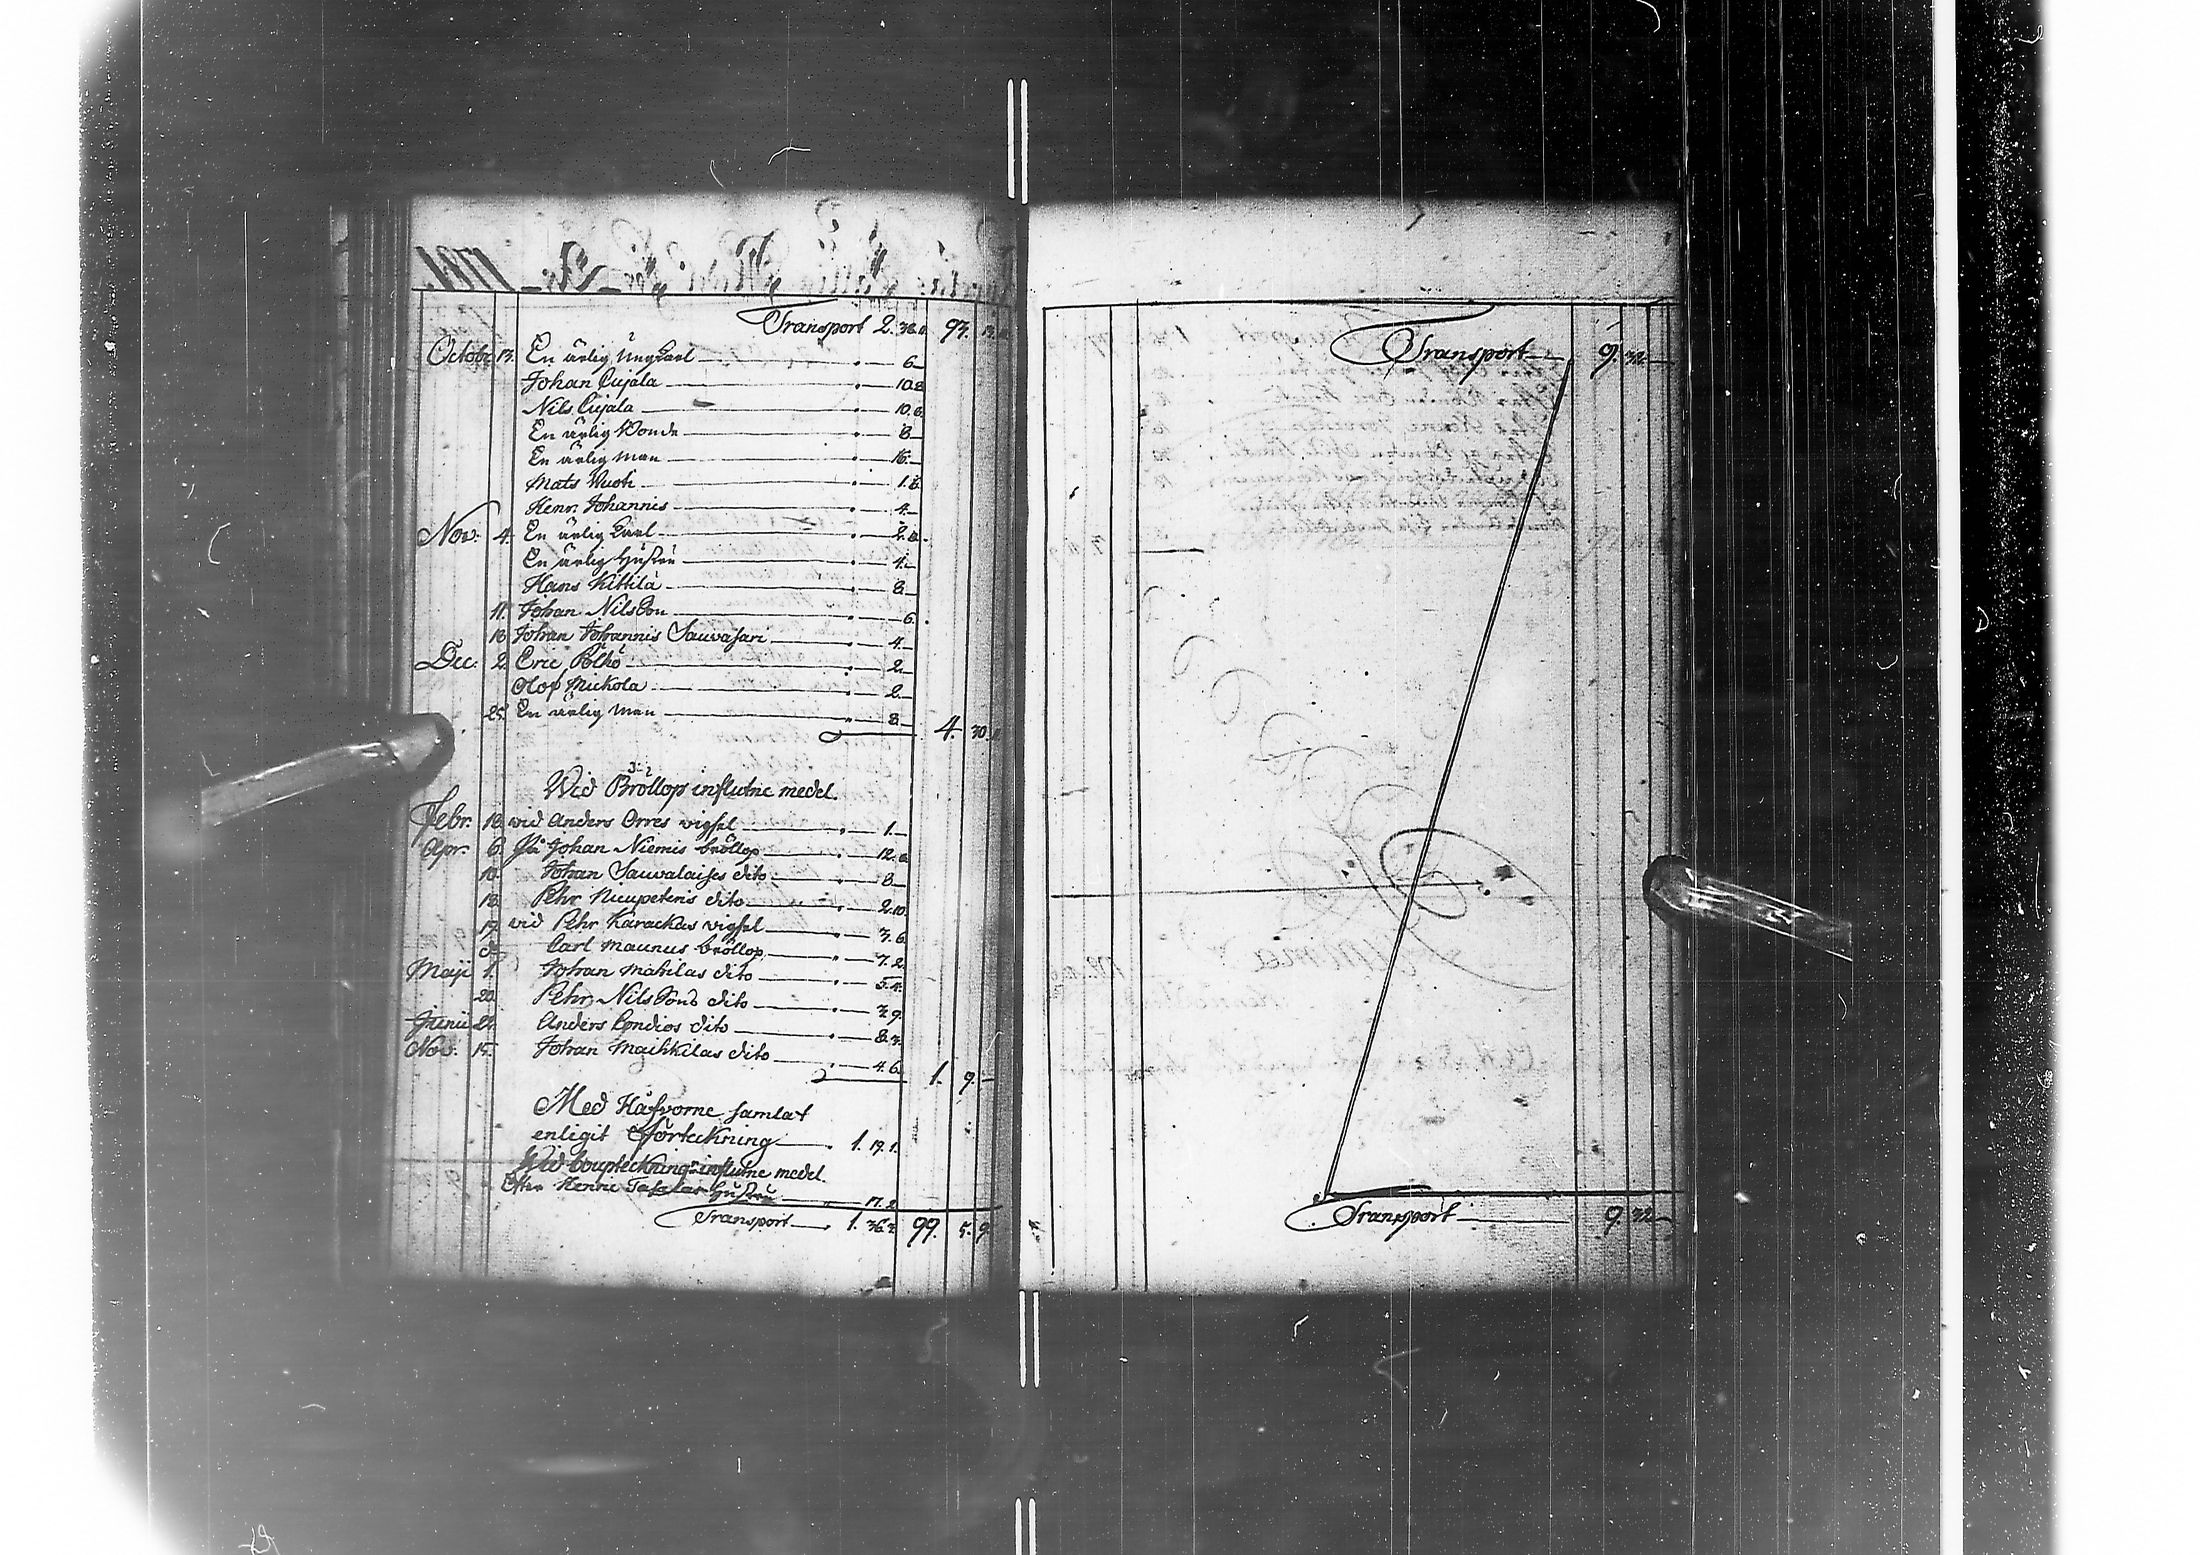 Transport 2. 93.
Octobr. 13. En ärlig Ungkarl 6.
Johan Cujala 10.
Nils Cujala 10.
En ärlig Bonde 8
En ärlig man 16.
Mats 1.
Henr. Johannis 4.
Nov. 4. En ärlig karl 2.
En ärlig Hustru 4.
Hans Kittilä 8.
11. Johan Nilsson 6.
18. Johan Johannis Sauvasari 4.
Dec. 2. Eric Pölhö 2.
Olof Mickola 2.
25. En ärlig man 8.
4. 30.
Wid Bröllop influtne medel.
Febr. 18. wid Anders Orres vigsel 1.
Apr. 6. På Johan Niemis bröllop 12.
10. Johan Sauvalaises dito 8.
Pehr dito 2.10.
17. wid Pehr Karackas vigsel 3. 6.
Carl Maunus bröllop 7. 2.
Maji 1. Johan dito 5. 4.
20. Pehr Nilssons dito 9.
Junii Anders dito 8.
Nov. 15. Johan dito 4. 6.
1. 9.
Med Håfvorne samlat
enligit Förteckning 1. 19. 1.
Wid boupteckning influtne medel.
Efter Henric Hustru 17. 2.
Transport 1. 36. 3. 99. 5. 9
Transport 9. 32
Transport 9. 32